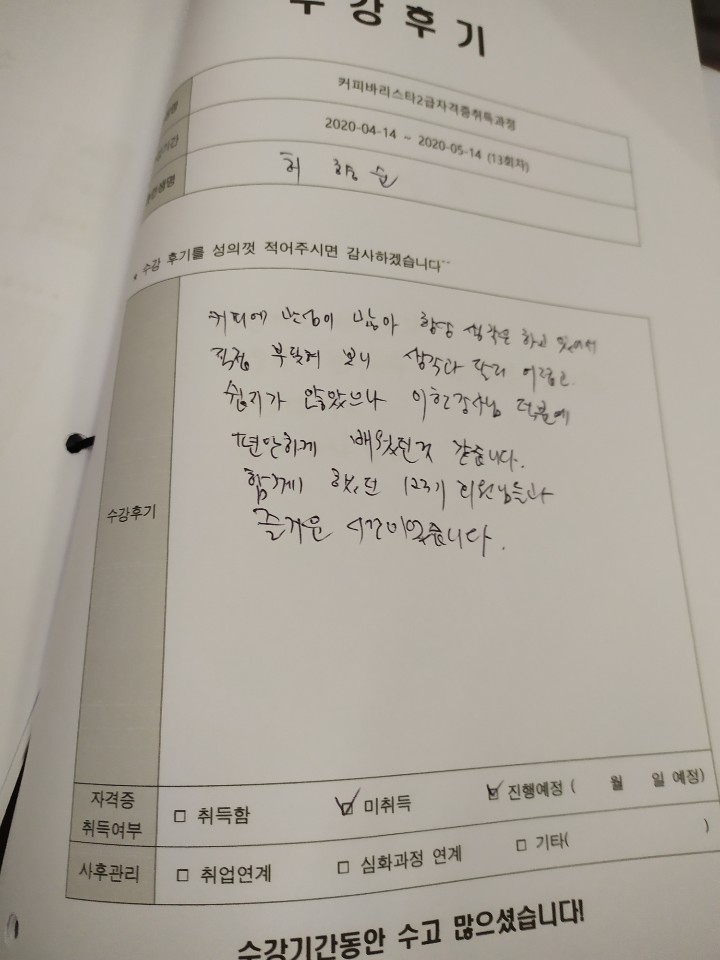 수강후기
커피바리스타2급자격증취득과정
2020-04-14 ~ 2020-05-14 (13회차)
허
* 수강 후기를 성의껏 적어주시면 감사하겠습니다^^
커피에 관심이 많아 항상 생각은 하고 있어서
직접 부딪혀 보니 생각과 달리 어렵고
쉽지가 않았으나 강사님 덕분에
편안하게 배웠던것 같습니다.
함께 했던 123기 회원님들과
즐거운 시간이었습니다.
수강후기
자격증 취득여부 □ 취득함 ☑ 미취득 ☑ 진행예정 ( 월 일 예정)
사후관리 □ 취업연계 □ 심화과정 연계 □ 기타( )
수강기간동안 수고 많으셨습니다!